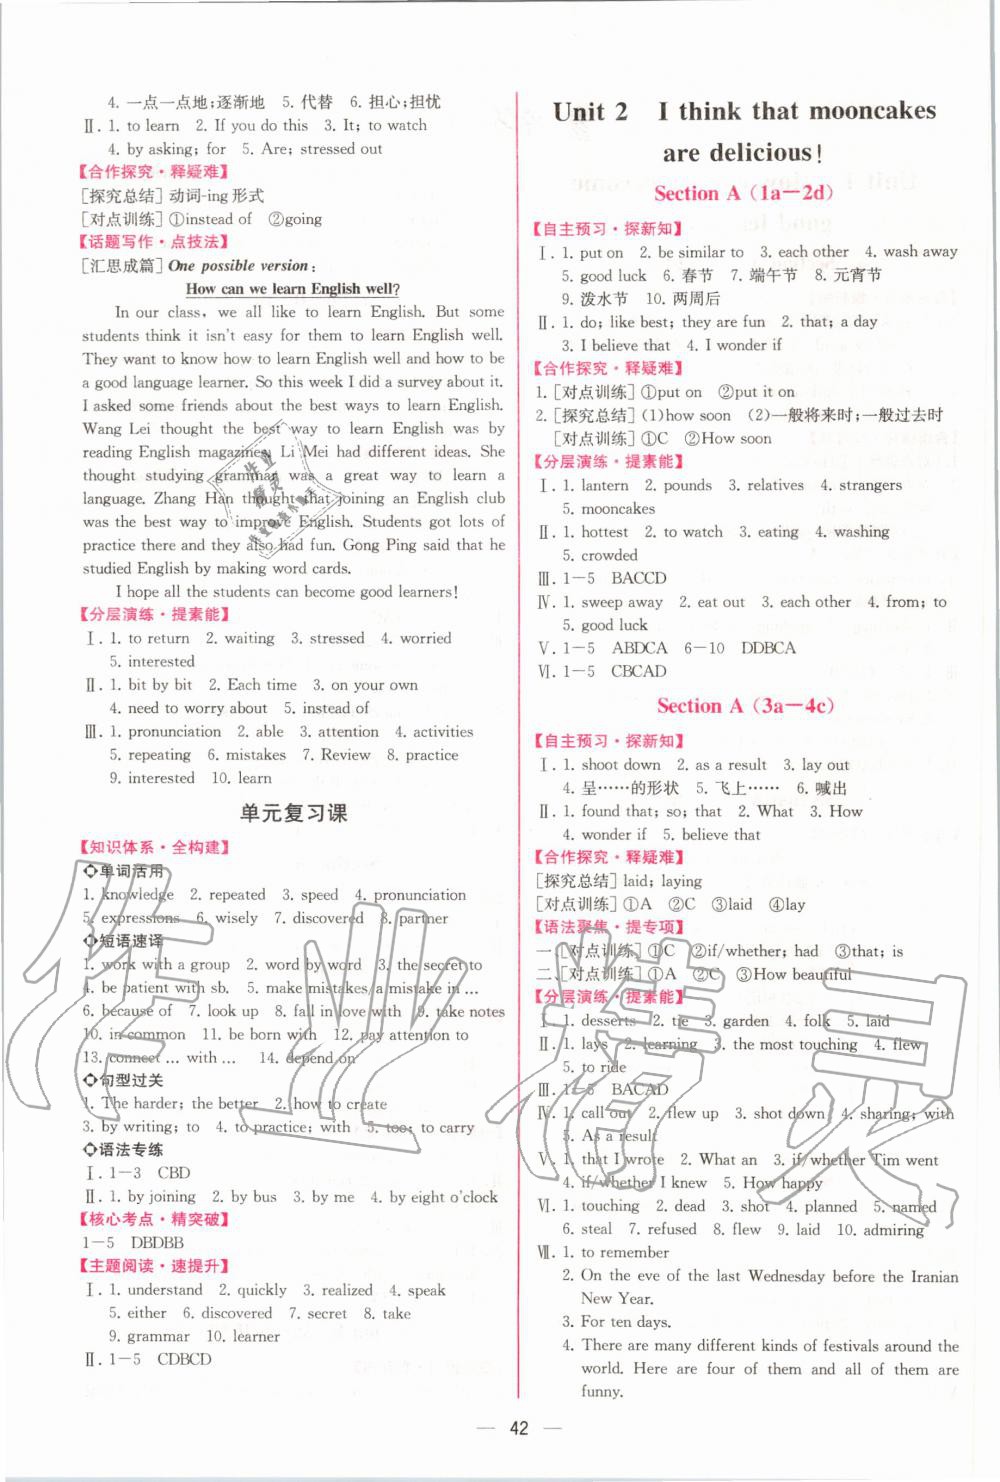 4. 一点一点地;逐渐地 5. 代替 6. 担心;担忧
Ⅱ. 1. to learn 2. If you do this 3. It; to watch
4. by asking; for 5. Are; stressed out
【合作探究·释疑难】
[探究总结] 动词-ing 形式
[对点训练] ①instead of ②going
【话题写作·点技法】
[汇思成篇] One possible version:
How can we learn English well?
In our class, we all like to learn English. But some
students think it isn't easy for them to learn English well.
They want to know how to learn English well and how to be
a good language learner. So this week I did a survey about it.
I asked some friends about the best ways to learn English.
Wang Lei thought the best way to learn English was by
reading English magazines. Li Mei had different ideas. She
thought studying grammar was a great way to learn a
language. Zhang Han thought that joining an English club
was the best way to improve English. Students got lots of
practice there and they also had fun. Gong Ping said that he
studied English by making word cards.
I hope all the students can become good learners!
【分层演练·提素能】
Ⅰ. 1. to return 2. waiting 3. stressed 4. worried
5. interested
Ⅱ. 1. bit by bit 2. Each time 3. on your own
4. need to worry about 5. instead of
Ⅲ. 1. pronunciation 2. able 3. attention 4. activities
5. repeating 6. mistakes 7. Review 8. practice
9. interested 10. learn
单元复习课
【知识体系·全构建】
◇单词活用
1. knowledge 2. repeated 3. speed 4. pronunciation
5. expressions 6. wisely 7. discovered 8. partner
◇短语速译
1. work with a group 2. word by word 3. the secret to
4. be patient with sb. 5. make mistakes/a mistake in ...
6. because of 7. look up 8. fall in love with 9. take notes
10. in common 11. be born with 12. pay attention to
13. connect ... with ... 14. depend on
◇句型过关
1. The harder; the better 2. how to create
3. by writing; to 4. to practice; with 5. too; to carry
◇语法专练
Ⅰ. 1－3 CBD
Ⅱ. 1. by joining 2. by bus 3. by me 4. by eight o'clock
【核心考点·精突破】
1－5 DBDBB
【主题阅读·速提升】
Ⅰ. 1. understand 2. quickly 3. realized 4. speak
5. either 6. discovered 7. secret 8. take
9. grammar 10. learner
Ⅱ. 1－5 CDBCD
Unit 2 I think that mooncakes
are delicious!
Section A (1a－2d)
【自主预习·探新知】
Ⅰ. 1. put on 2. be similar to 3. each other 4. wash away
5. good luck 6. 春节 7. 端午节 8. 元宵节
9. 泼水节 10. 两周后
Ⅱ. 1. do; like best; they are fun 2. that; a day
3. I believe that 4. I wonder if
【合作探究·释疑难】
1. [对点训练] ①put on ②put it on
2. [探究总结] (1)how soon (2)一般将来时;一般过去时
[对点训练] ①C ②How soon
【分层演练·提素能】
Ⅰ. 1. lantern 2. pounds 3. relatives 4. strangers
5. mooncakes
Ⅱ. 1. hottest 2. to watch 3. eating 4. washing
5. crowded
Ⅲ. 1－5 BACCD
Ⅳ. 1. sweep away 2. eat out 3. each other 4. from; to
5. good luck
Ⅴ. 1－5 ABDCA 6－10 DDBCA
Ⅵ. 1－5 CBCAD
Section A (3a－4c)
【自主预习·探新知】
Ⅰ. 1. shoot down 2. as a result 3. lay out
4. 呈……的形状 5. 飞上…… 6. 喊出
Ⅱ. 1. found that; so; that 2. What 3. How
4. wonder if 5. believe that
【合作探究·释疑难】
[探究总结] laid; laying
[对点训练] ①A ②C ③laid ④lay
【语法聚焦·提专项】
一、[对点训练] ①C ②if/whether; had ③that; is
二、[对点训练] ①A ②C ③How beautiful
【分层演练·提素能】
Ⅰ. 1. desserts 2. tie 3. garden 4. folk 5. laid
Ⅱ. 1. lays 2. learning 3. the most touching 4. flew
5. to ride
Ⅲ. 1－5 BACAD
Ⅳ. 1. call out 2. flew up 3. shot down 4. sharing; with
5. As a result
Ⅴ. 1. that I wrote 2. What an 3. if/whether Tim went
4. if/whether I knew 5. How happy
Ⅵ. 1. touching 2. dead 3. shot 4. planned 5. named
6. steal 7. refused 8. flew 9. laid 10. admiring
Ⅶ. 1. to remember
2. On the eve of the last Wednesday before the Iranian
New Year.
3. For ten days.
4. There are many different kinds of festivals around the
world. Here are four of them and all of them are
funny.
— 42 —
作业精灵